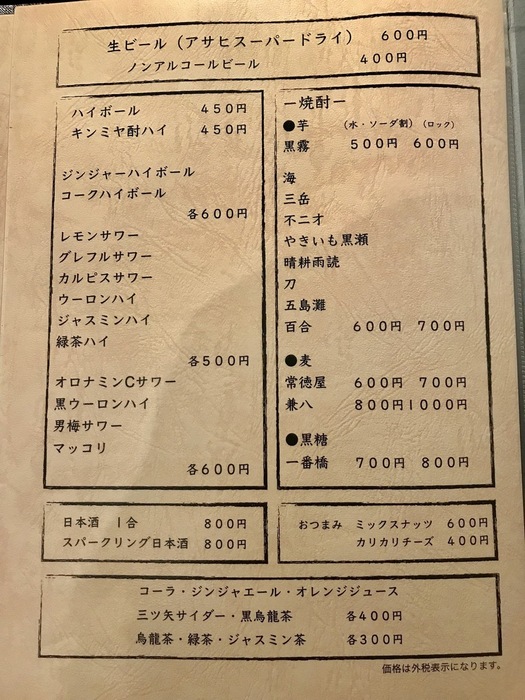 生ビール（アサヒスーパードライ） 600円
ノンアルコールビール 400円
ハイボール 450円
キンミヤ酎ハイ 450円
ジンジャーハイボール
コークハイボール
各600円
レモンサワー
グレフルサワー
カルピスサワー
ウーロンハイ
ジャスミンハイ
緑茶ハイ
各500円
オロナミンCサワー
黒ウーロンハイ
男梅サワー
マッコリ
各600円
ー焼酎ー
●芋 （水・ソーダ割）（ロック）
黒霧 500円 600円
海
三岳
不二才
やきいも黒瀬
晴耕雨読
刀
五島灘
百合 600円 700円
●麦
常徳屋 600円 700円
兼八 800円 1000円
●黒糖
一番橋 700円 800円
日本酒 1合 800円
スパークリング日本酒 800円
おつまみ ミックスナッツ 600円
カリカリチーズ 400円
コーラ・ジンジャエール・オレンジジュース
三ツ矢サイダー・黒烏龍茶 各400円
烏龍茶・緑茶・ジャスミン茶 各300円
価格は外税表示になります。